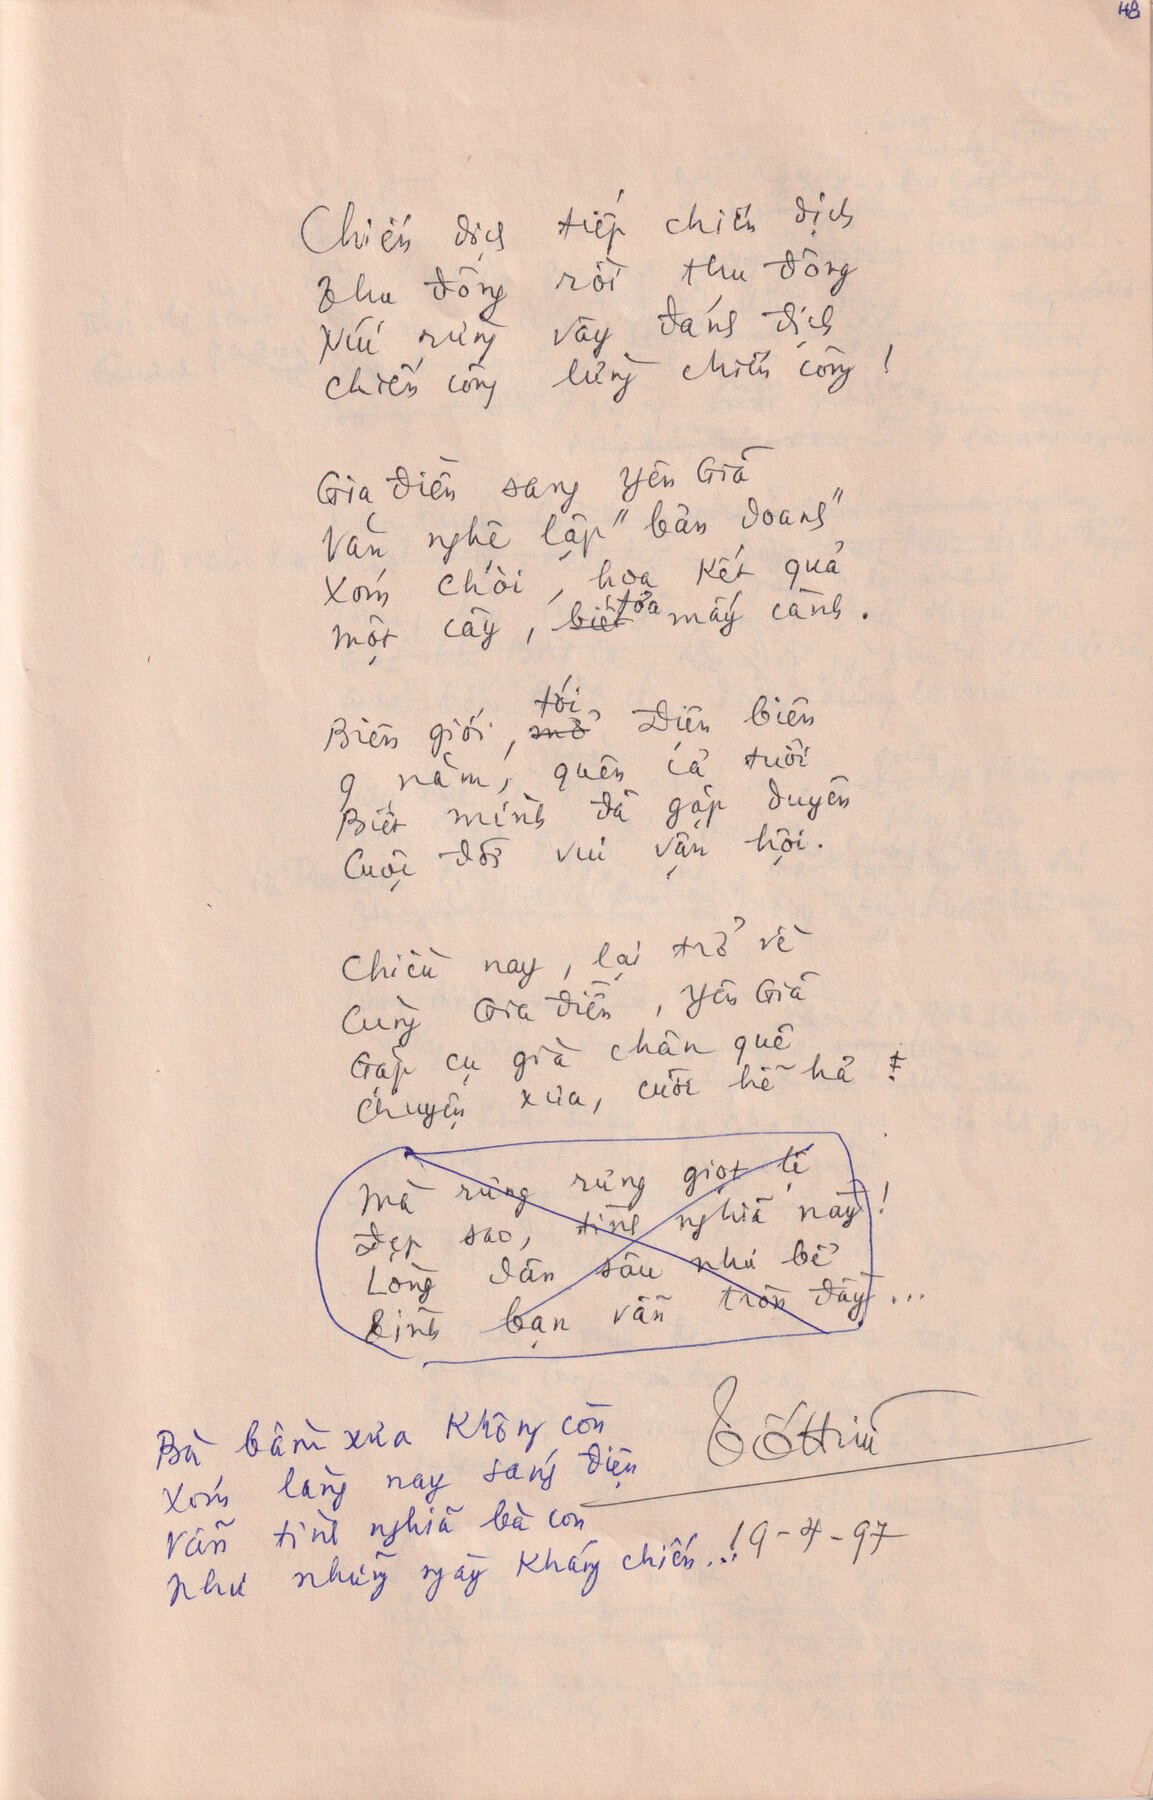 48
Chiến dịch tiếp chiến dịch
Thu đông rồi thu đông
Núi rừng vây đánh địch
Chiến công lừng chiến công !
Gia Điền sang Yên Giã
Văn nghệ lập "bản doanh"
Xóm Chòi, hoa kết quả
Một cây, biết tỏa mấy cành.
Biên giới, mở tới Điện Biên
9 năm, quên cả tuổi
Biết mình đã gặp duyên
Cuộc đời vui vận hội.
Chiều nay, lại trở về
Cùng Gia Điền, Yên Giã
Gặp cụ già chân quê
Chuyện xưa, cười hể hả !
Mà rưng rưng giọt lệ
Đẹp sao, tình nghĩa này !
Lòng dân sâu như bể
Bình bạn vẫn tròn đầy...
Bà bầm xưa không còn
Xóm làng nay sáng điện
Vẫn tình nghĩa bà con
Như những ngày kháng chiến...
Tố Hữu
19-4-97